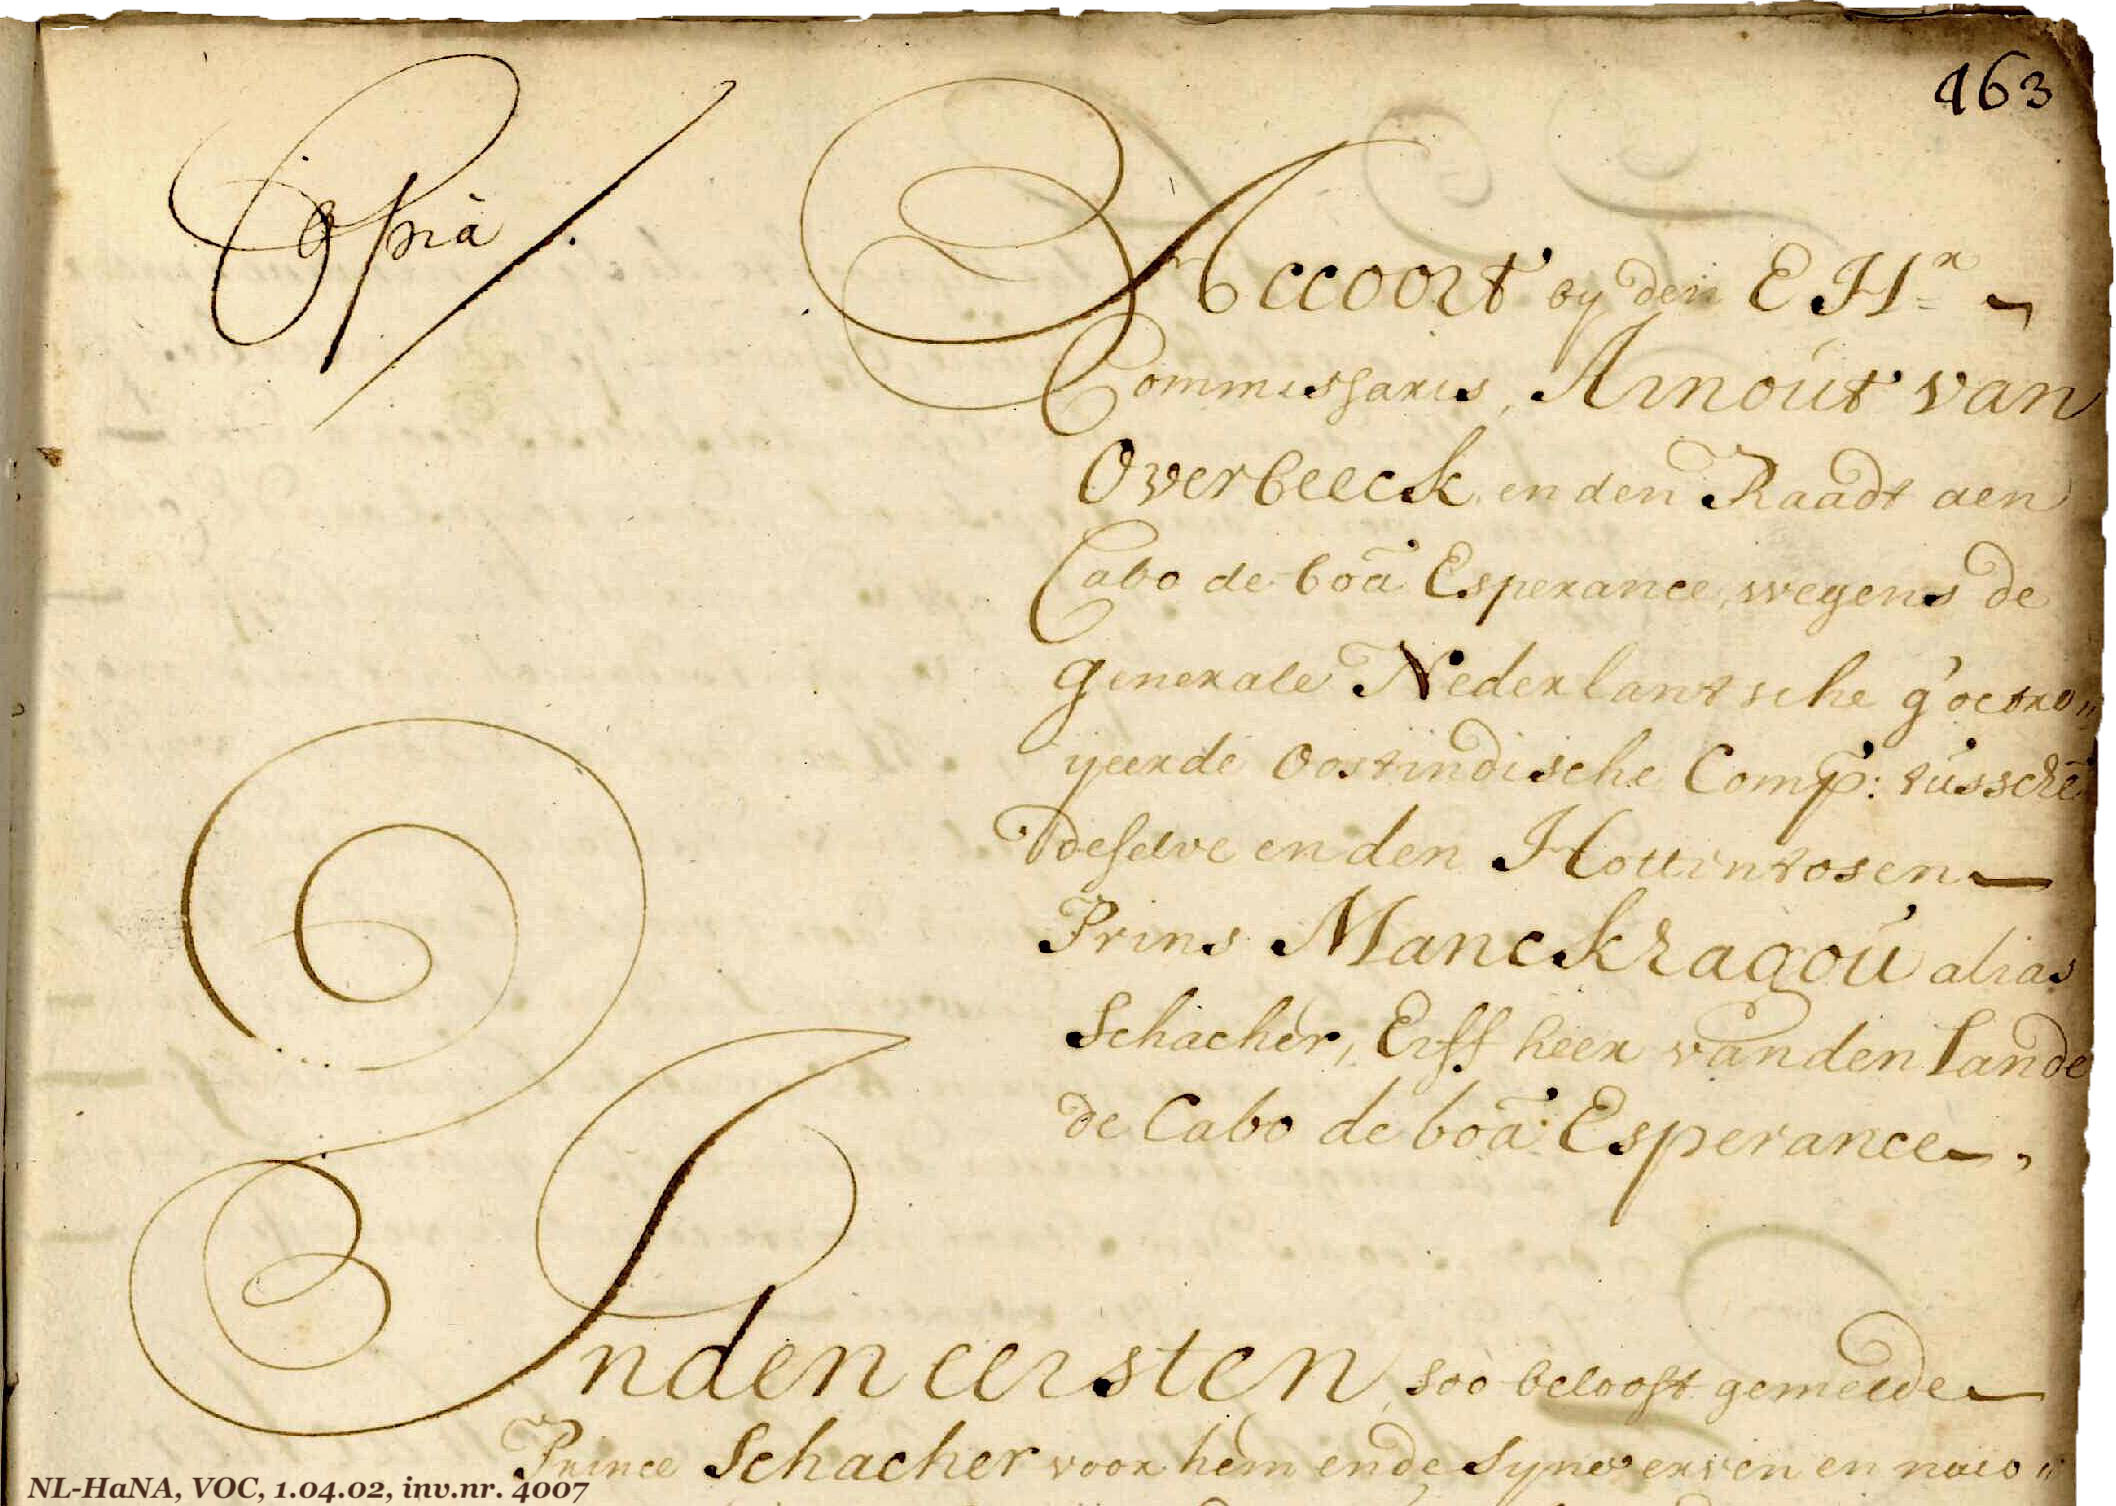 463
Copia
Accoort by den E Hr
Commissaris, Arnout van
Overbeeck en den Raadt aen
Cabo de boã Esperance, wegens de
generale Nederlantsche g'octro„
ijeerde Oostindische Comp: tusschē
deselve en den Hottentosen
Prins Manckhagou alias
Schacher, Erff heer van den Lande
de Cabo de boã Esperance
In den eersten, soo belooft gemelde
Prince Schacher voor hem ende syne erven en naco„
NL-HaNA, VOC, 1.04.02, inv.nr. 4007